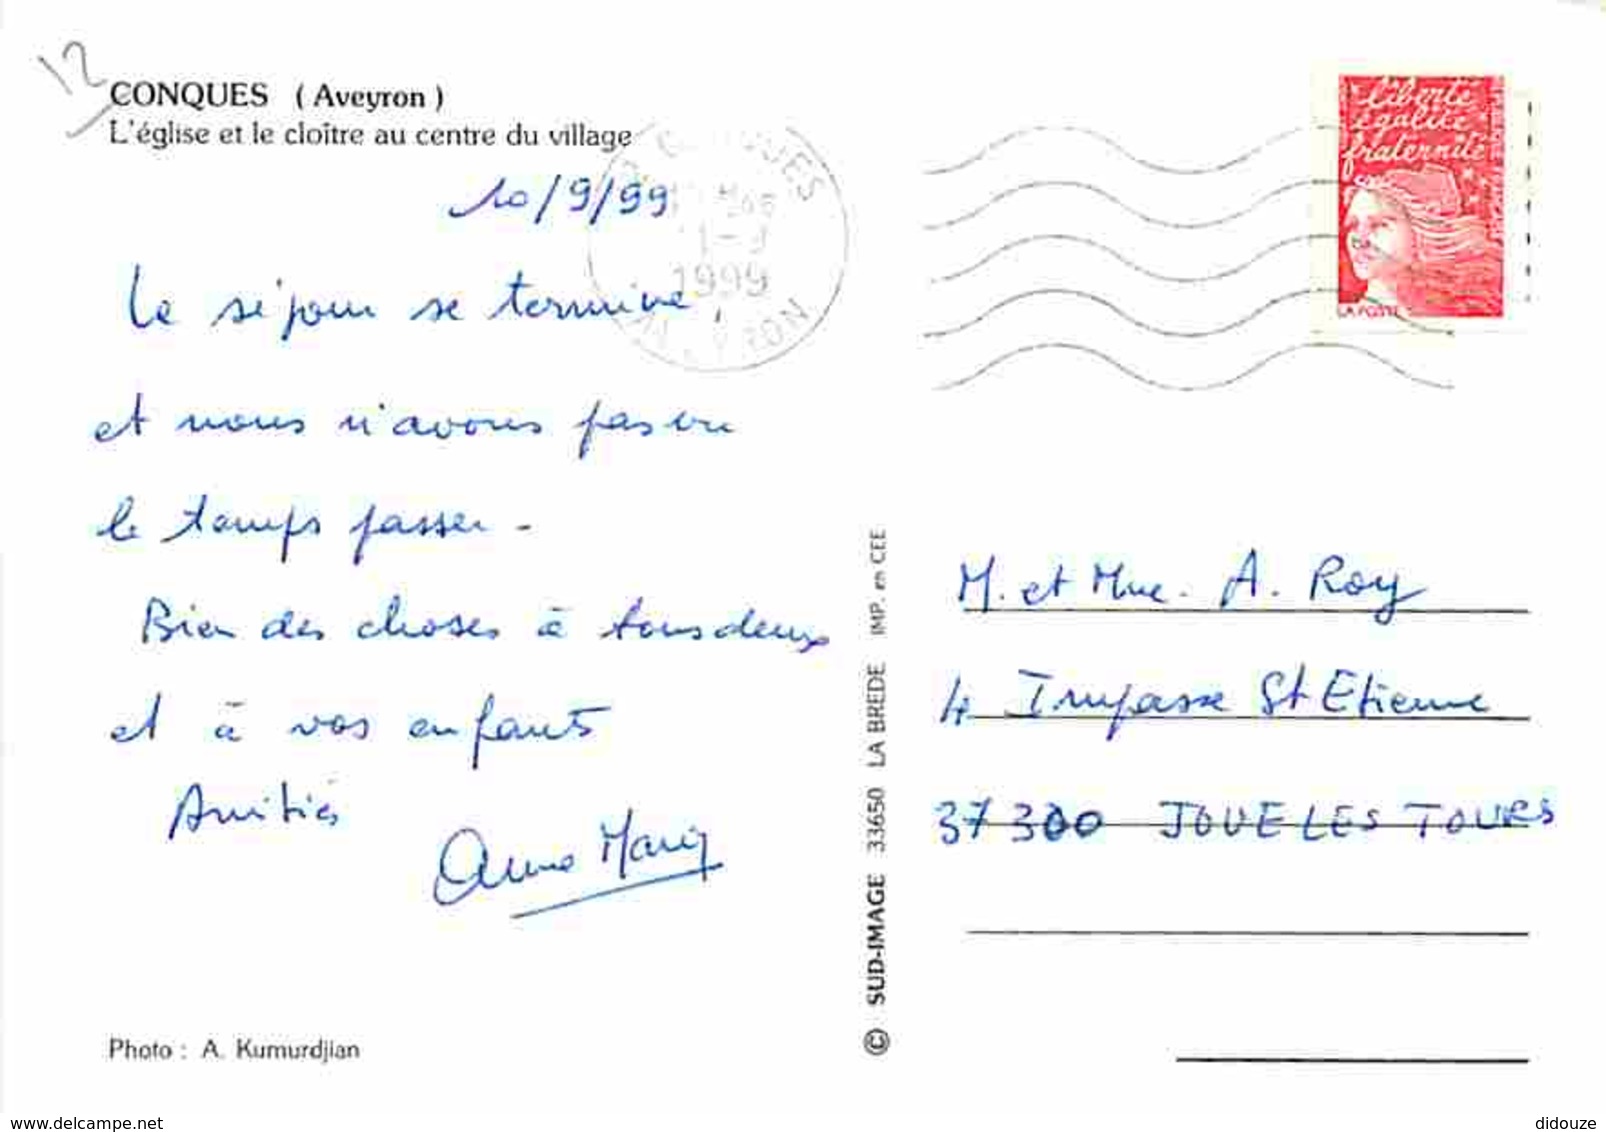 12
CONQUES (Aveyron)
L'église et le cloître au centre du village
10/9/99
1999
Liberté
égalité
fraternité
LA POSTE
Le séjour se termine,
et nous n'avons pas vu
le temps passer -
Bien des choses à tous deux
et à vos enfants
Amitiés
Anne Marie
Photo : A. Kumurdjian
© SUD-IMAGE 33650 LA BREDE IMP. en CEE
M. et Mme. A. Roy
4 Impasse St Etienne
37300 JOUE LES TOURS
delcampe.net
didouze